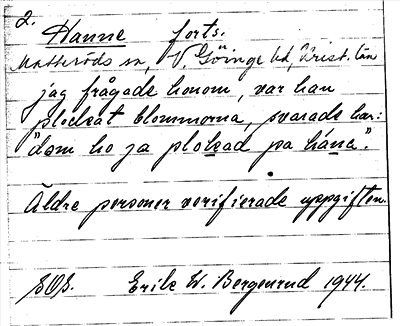 2.
Hanne forts.
Matteröds sn, V. Göinge hd, Krist. län
jag frågade honom, var han
plockat blommorna, svarade han:
"dom ho ja plokad pa hána".
Äldre personer verifierade uppgiften.
Erik W. Bergenrud 1944.